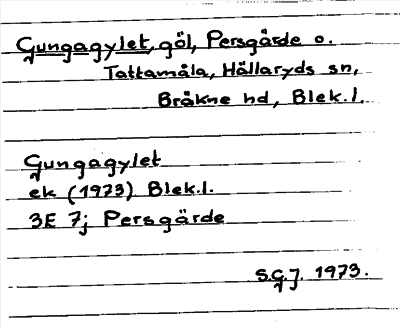 Gungagylet, göl, Persgärde o.
Tattamåla, Hällaryds sn,
Bräkne hd, Blek.l.
Gungagylet
ek (1973) Blek.l.
3E 7j Persgärde
S.G.J. 1973.